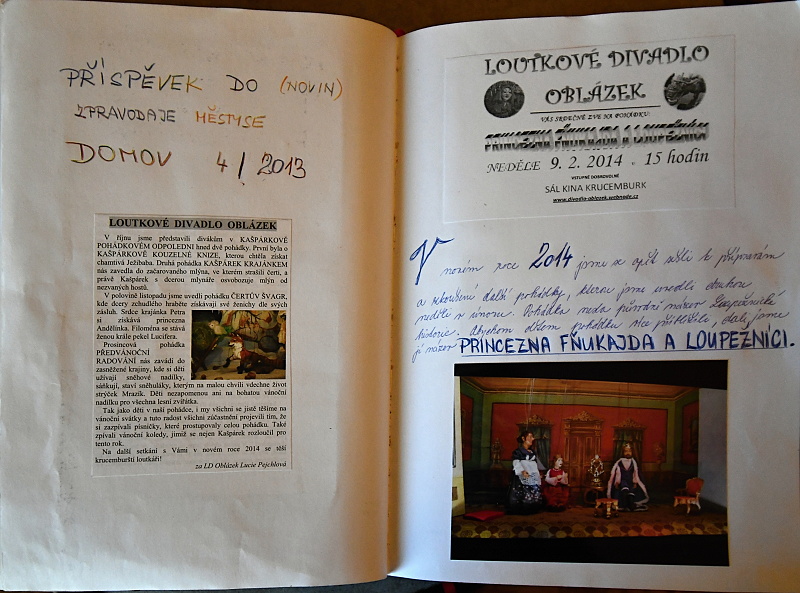 PŘÍSPĚVEK DO (NOVIN)
ZPRAVODAJE MĚSTYSE
DOMOV 4/2013
LOUTKOVÉ DIVADLO OBLÁZEK
V říjnu jsme představili divákům v KAŠPÁRKOVĚ
POHÁDKOVÉM ODPOLEDNI hned dvě pohádky. První byla o
KAŠPÁRKOVĚ KOUZELNÉ KNIZE, kterou chtěla získat
chamtivá Ježibaba. Druhá pohádka KAŠPÁREK KRAJÁNKEM
nás zavedla do začarovaného mlýna, ve kterém strašili čerti, a
právě Kašpárek s dcerou mlynáře osvobozuje mlýn od
nezvaných hostů.
V polovině listopadu jsme uvedli pohádku ČERTŮV ŠVAGR,
kde dcery zchudlého hraběte získávají své ženichy dle svých
zásluh. Srdce krajánka Petra
si získává princezna
Andělínka. Filoména se stává
ženou krále pekel Lucifera.
Prosincová pohádka
PŘEDVÁNOČNÍ
RADOVÁNÍ nás zavádí do
zasněžené krajiny, kde si děti
užívají sněhové nadílky,
sáňkují, staví sněhuláky, kterým na malou chvíli vdechne život
strýček Mrazík. Děti nezapomenou ani na bohatou vánoční
nadílku pro všechna lesní zvířátka.
Tak jako děti v naší pohádce, i my všichni se jistě těšíme na
vánoční svátky a tuto radost všichni zúčastnění projevili tím, že
si zazpívali písničky, které prostupovaly celou pohádku. Také
zpívali vánoční koledy, jimiž se nejen Kašpárek rozloučil pro
tento rok.
Na další setkání s Vámi v novém roce 2014 se těší
krucemburští loutkáři!
za LD Oblázek Lucie Pejchlová
LOUTKOVÉ DIVADLO
OBLÁZEK
VÁS SRDEČNĚ ZVE NA POHÁDKU:
PRINCEZNA FŇUKAJDA A LOUPEŽNÍCI
NEDĚLE 9. 2. 2014 . 15 hodin
VSTUPNÉ DOBROVOLNÉ
SÁL KINA KRUCEMBURK
www.divadlo-oblezek.webnode.cz
V novém roce 2014 jsme se opět sešli k přípravám
a zkoušení další pohádky, kterou jsme uvedli druhou
neděli v únoru. Pohádka nesla původní název Loupežnická
historie. Abychom dětem pohádku více přiblížili, dali jsme
jí název PRINCEZNA FŇUKAJDA A LOUPEŽNÍCI.